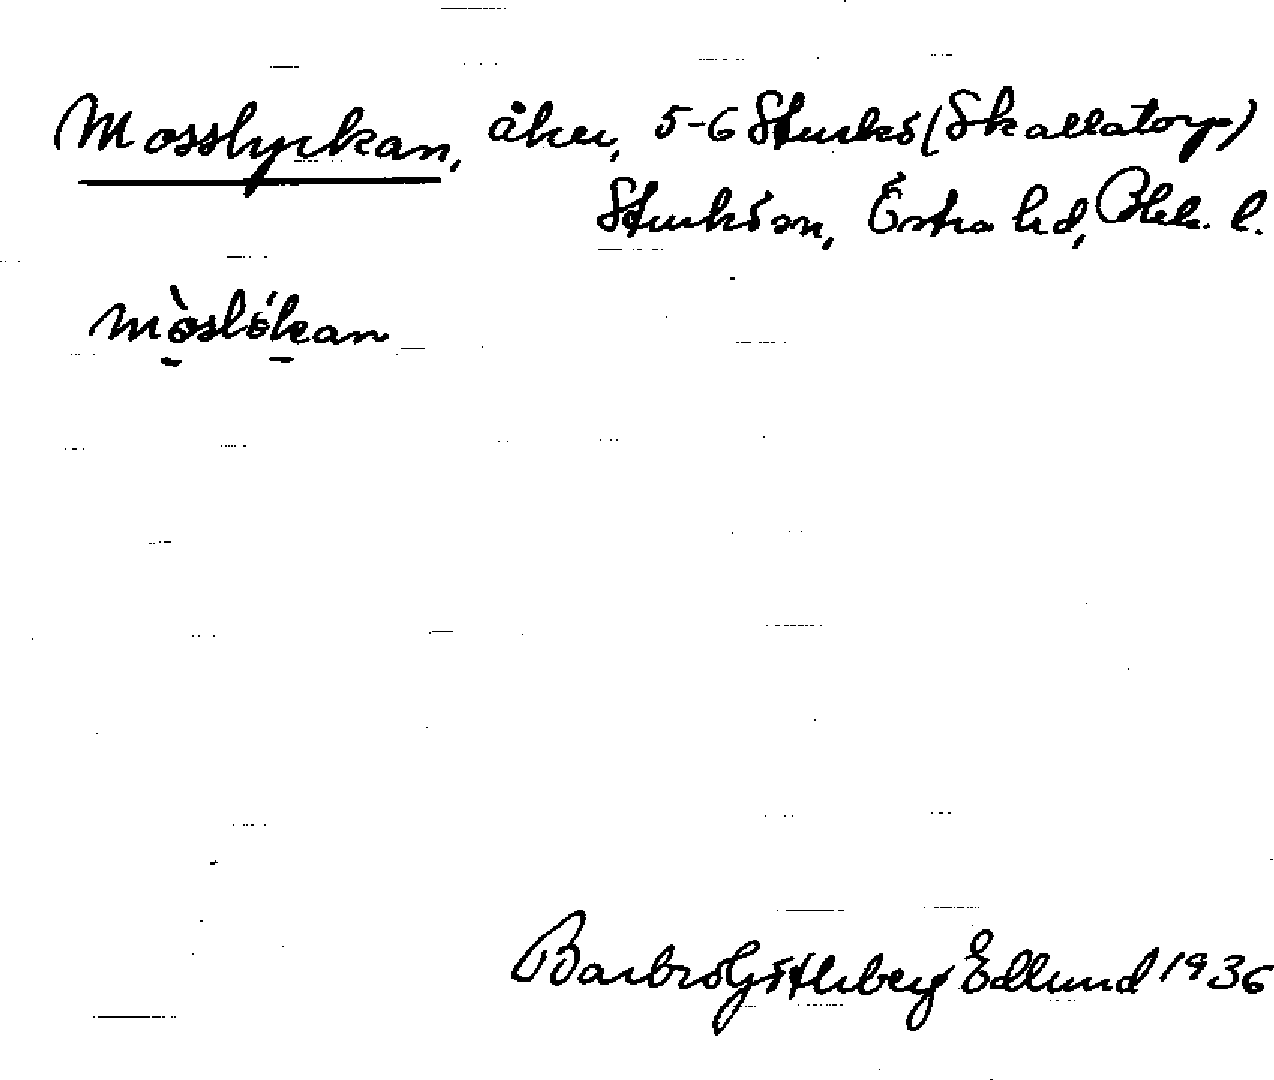 Mosslyckan, åker, 5-6 Sturkö (Skallatorp)
Sturkö sn, Östra hd, Blek. l.
mòslökan
Barbro Götlberg Edlund 1936